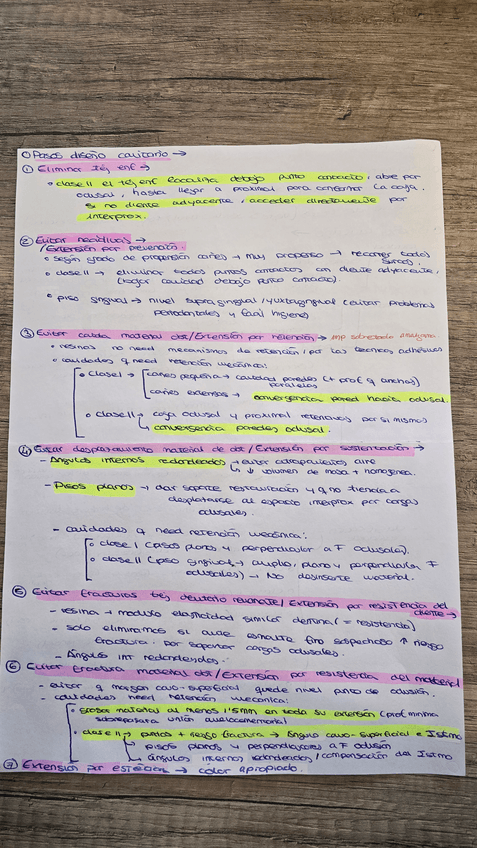 ⓪ Pasos diseño cavitario →
① Eliminar tej enf →
∘ clase II el tej enf localiza debajo punto contacto, abre por
oclusal, hasta llegar a proximal para conformar la caja.
si no diente adyacente, acceder directamente por
interprox.
② Evitar recidivas →
/Extensión por prevención:
∘ según grado de propensión caries → muy propenso → recorrer todos
surcos.
∘ clase II → eliminar todos puntos contactos con diente adyacente,
(hacer cavidad debajo punto contacto).
∘ piso gingival → nivel supragingival/yuxtagingival (evitar problemas
periodontales y fácil higiene)
③ Evitar caída material obt/Extensión por retención → imp sobretodo amalgama.
∘ resinas no need mecanismos de retención, por las técnicas adhesivas
∘ cavidades q need retención mecánica:
∘ clase I → caries pequeña → cavidad paredes (+ prof q anchas)
paralelas
caries extensa → convergencia pared hacia oclusal.
∘ clase II → caja oclusal y proximal retentivas por si mismas
↳ convergencia paredes oclusal.
④ Evitar desplazamiento material de obt/Extensión por sustentación →
- Ángulos internos redondeados → evitar atrapamientos aire
↳ ↓ volumen de masa + homogénea.
- Pisos planos → dar soporte restauración y q no tienda a
desplazarse al espacio interprox por cargas
oclusales.
- cavidades q need retención mecánica:
∘ clase I (pisos planos y perpendicular a F oclusales).
∘ clase II (piso gingival → amplio, plano y perpendicular F
oclusales) → No desinserte material.
⑤ Evitar fracturas tej dentario remanente/Extensión por resistencia del
diente →
- resina → módulo elasticidad similar dentina (= resistencia)
- solo eliminamos si queda esmalte fino sospechoso ↑ riesgo
fractura por soportar cargas oclusales.
- Ángulos int redondeados.
⑥ Evitar fractura material obt/Extensión por resistencia del material
- evitar q margen cavo-superficial quede nivel punto de oclusión.
- cavidades need retención mecánica:
∘ grosor material al menos 1'5mm en toda su extensión (prof mínima
sobrepasara unión amelocementaria)
∘ clase II → puntos + riesgo fractura → Ángulo cavo-superficial e Istmo
↳ pisos planos y perpendiculares a F oclusión
↳ ángulos internos redondeados/compensación del Istmo
⑦ Extensión por estética → color apropiado.